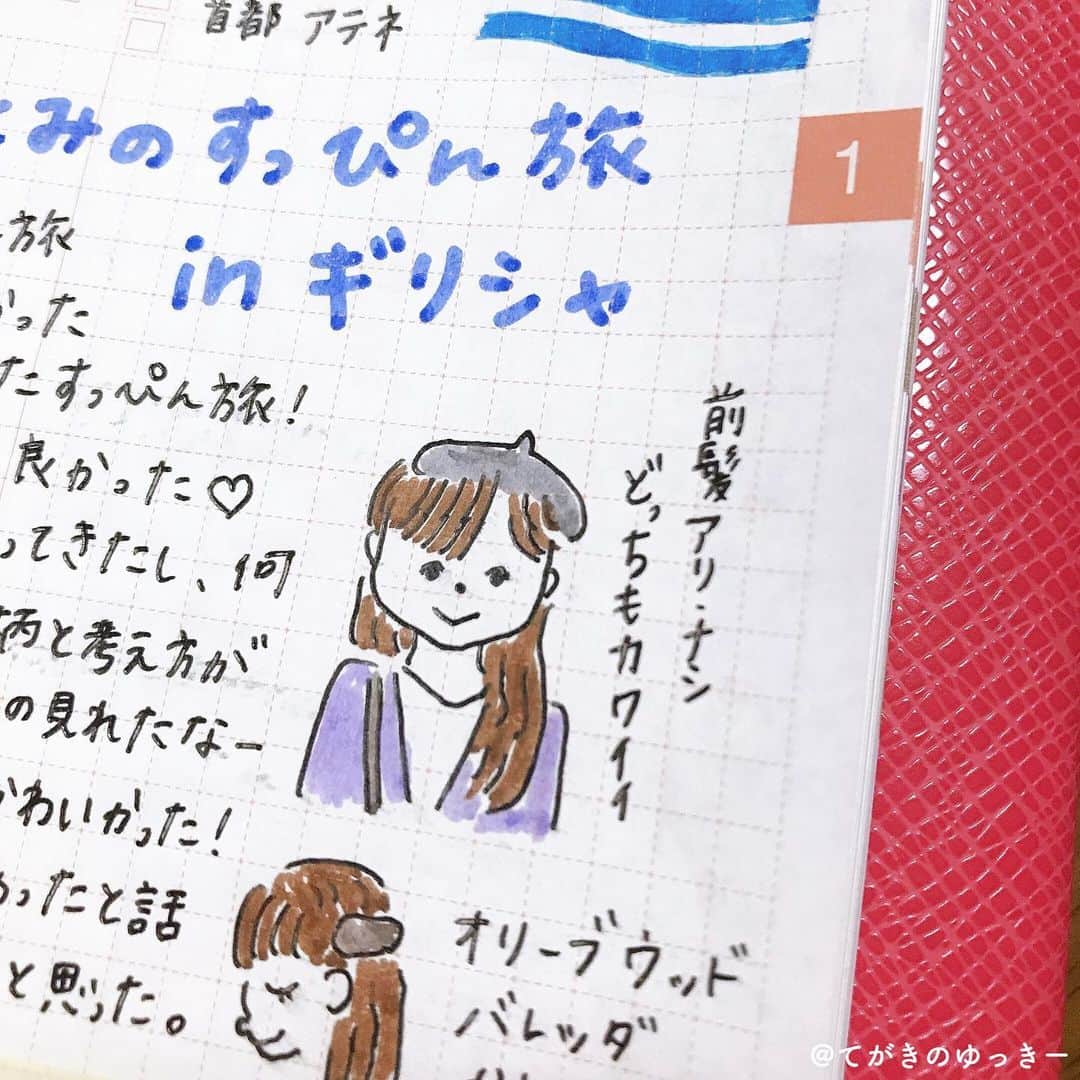 首都 アテネ
みのすっぴん旅
in ギリシャ
1
旅
かった
たすっぴん旅！
良かった♡
ってきたし、何
と考え方が
の見れたなー
かわいかった！
ったと話
と思った。
前髪アリ・ナシ
どっちもカワイイ
オリーブウッド
バレッタ
@てがきのゆっきー